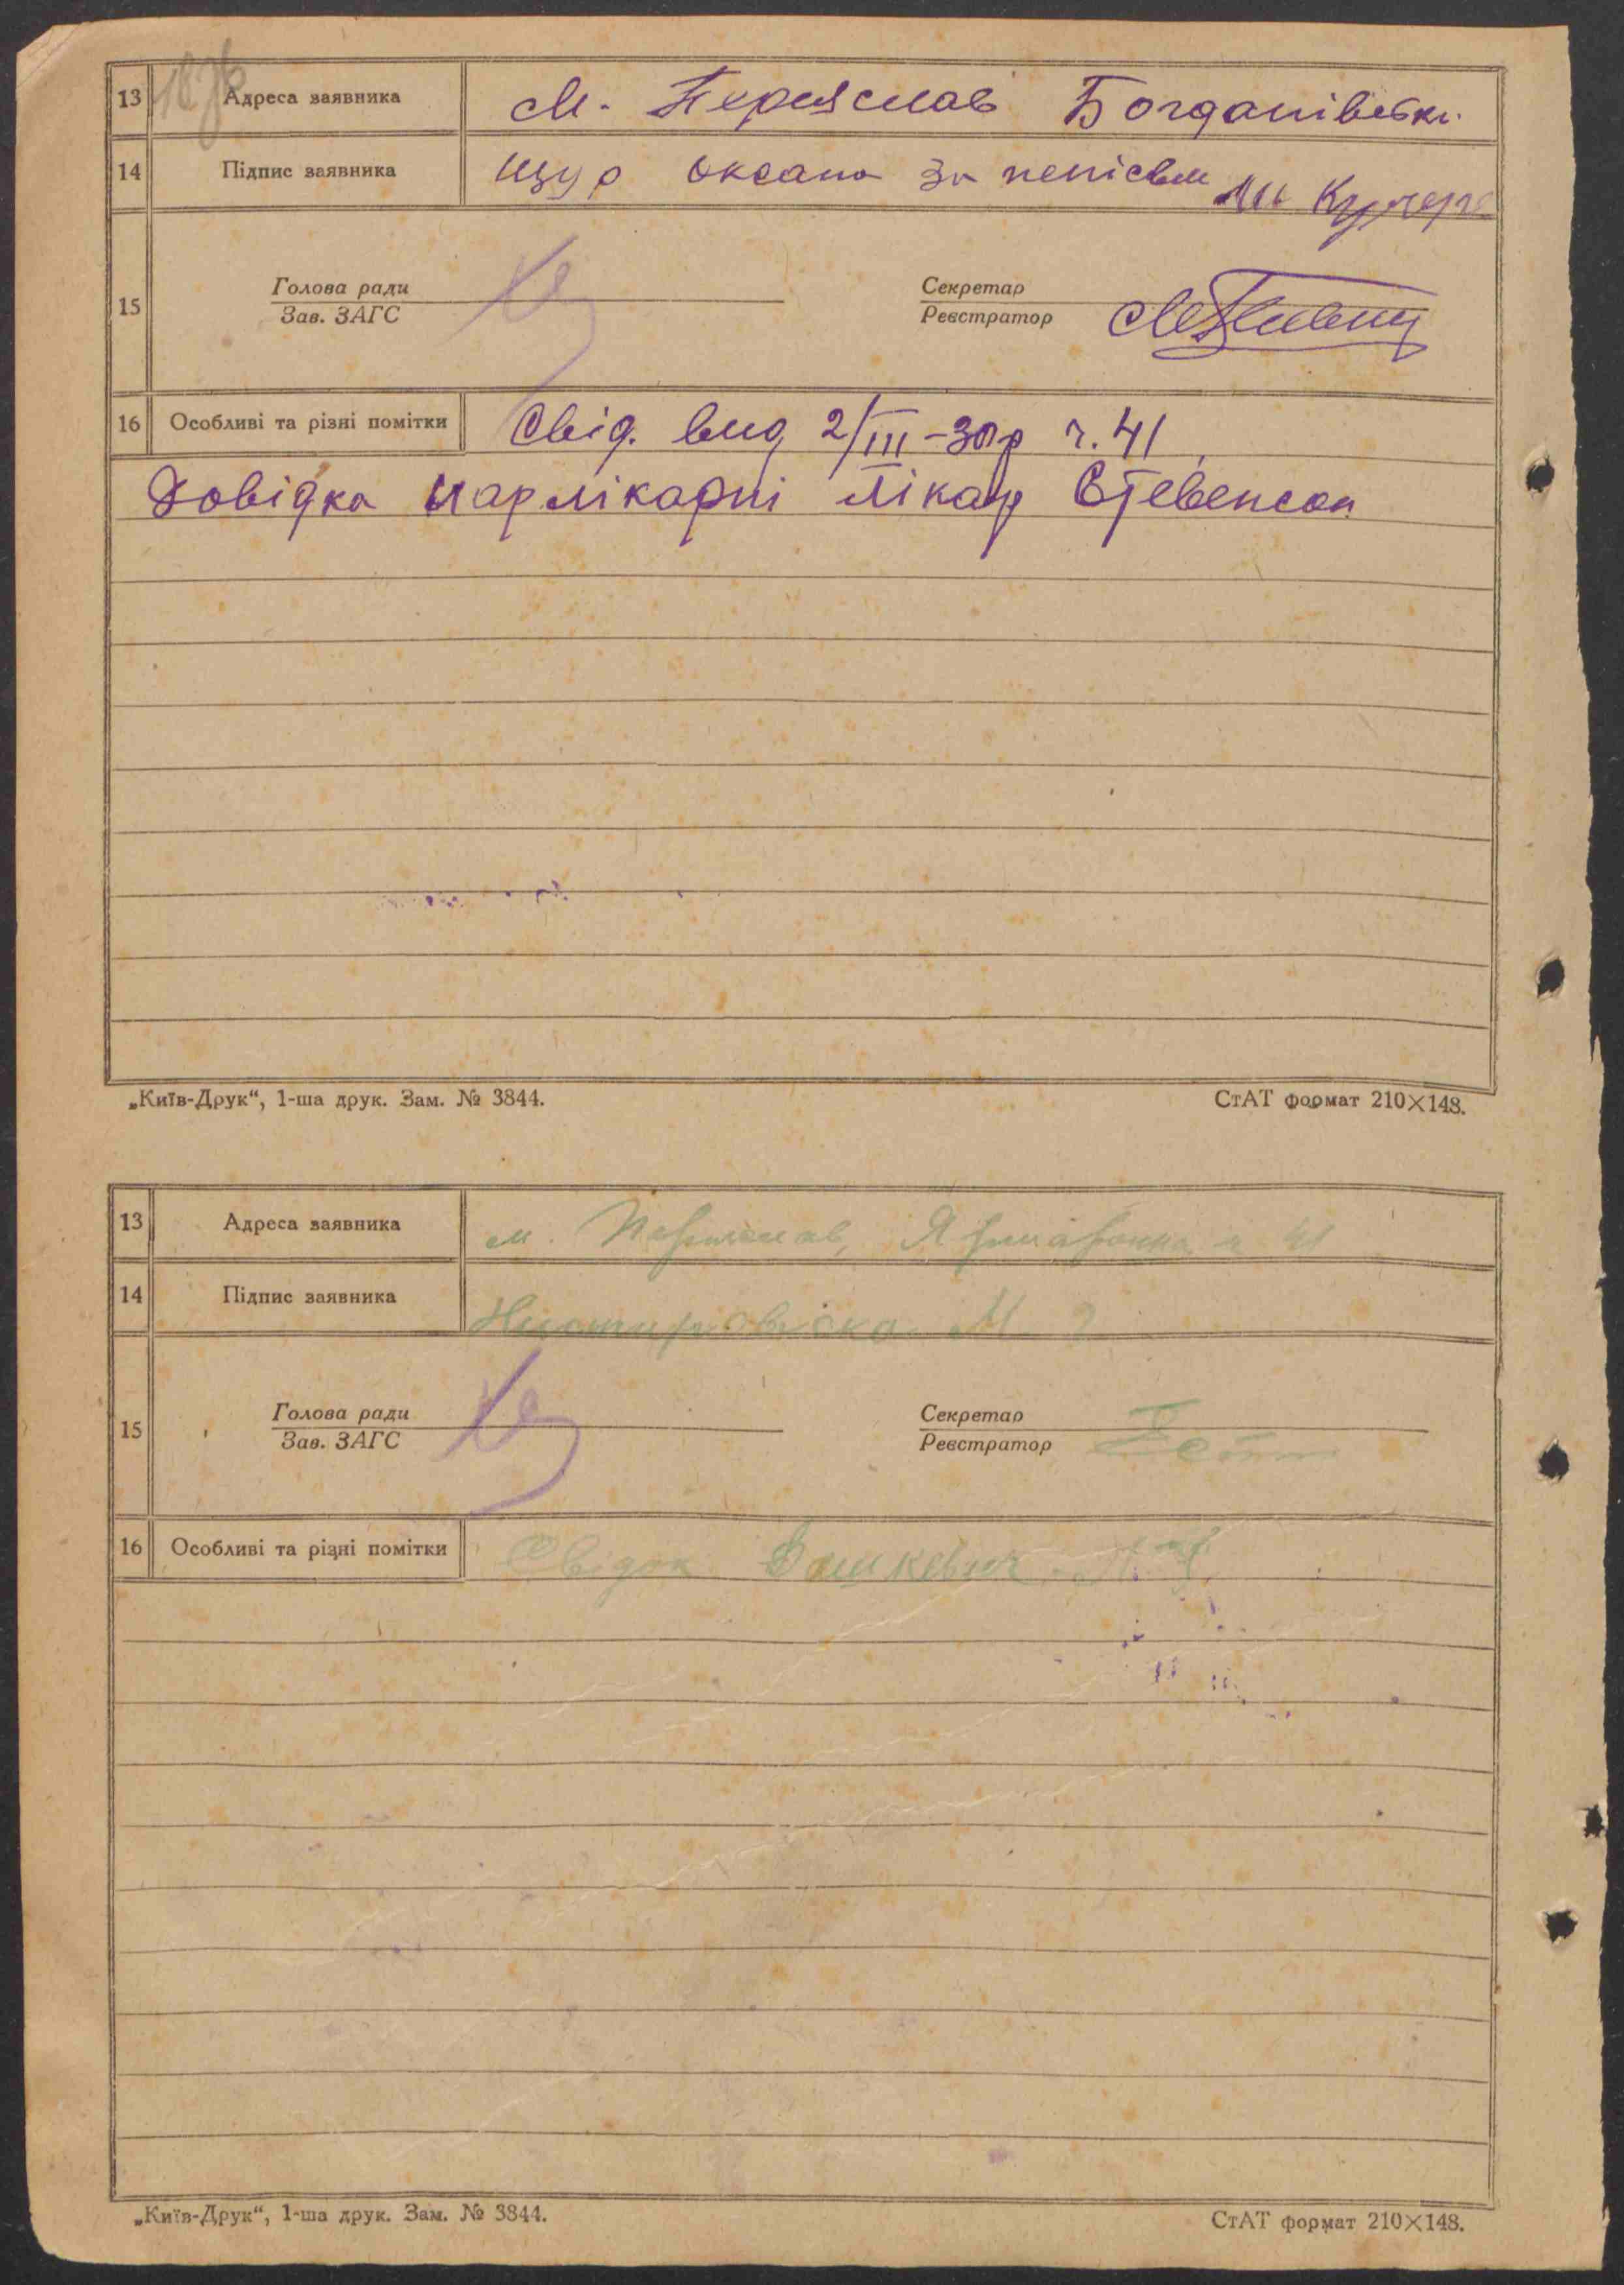 13 Адреса заявника м. Переяслав Богданівськ.
14 Підпис заявника Щур Оксана за непісьм
15 Голова ради
Зав. ЗАГС
Секретар
Реєстратор
16 Особливі та різні помітки Свід. вид 2/III-30 р ч. 41
Довідка нарлікарні лікар Стевенсон
„Київ-Друк“, 1-ша друк. Зам. № 3844. СтАТ формат 210×148.
13 Адреса заявника м. Переяслав, Ярмаркова ч 41
14 Підпис заявника
15 Голова ради
Зав. ЗАГС
Секретар
Реєстратор
16 Особливі та різні помітки Свідок
„Київ-Друк“, 1-ша друк. Зам. № 3844. СтАТ формат 210×148.